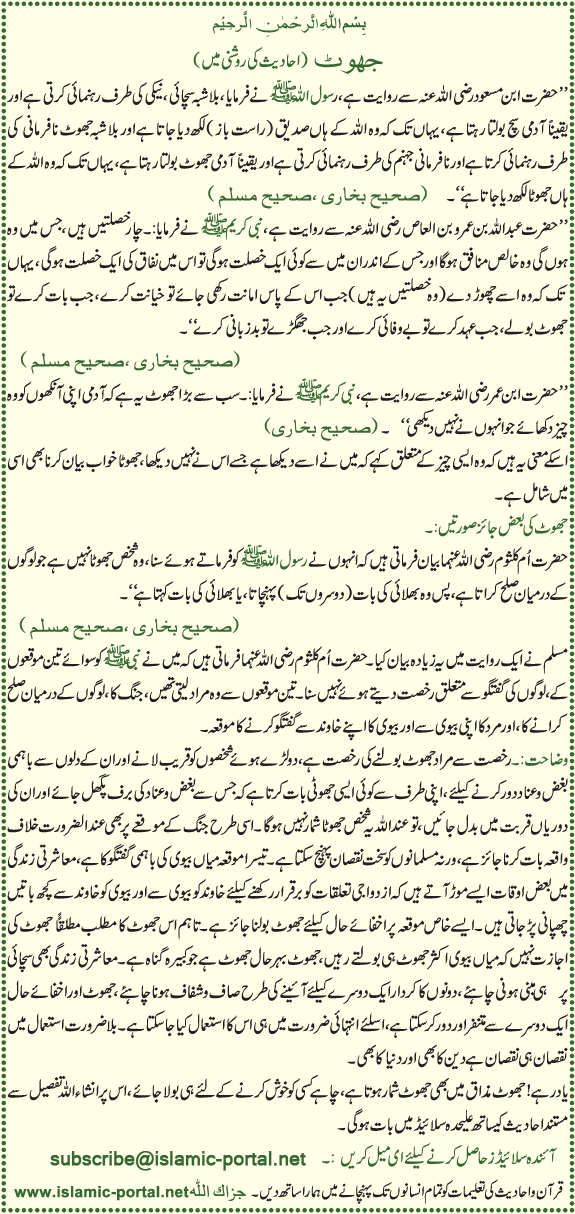 بِسْمِ اللهِ الرَّحْمٰنِ الرَّحِيْمِ
جھوٹ (احادیث کی روشنی میں)
’’حضرت ابن مسعود رضی اللہ عنہ سے روایت ہے، رسول اللہ ﷺ نے فرمایا، بلاشبہ سچائی، نیکی کی طرف رہنمائی کرتی ہے اور
یقیناً آدمی سچ بولتا رہتا ہے، یہاں تک کہ وہ اللہ کے ہاں صدیق (راست باز) لکھ دیا جاتا ہے اور بلاشبہ جھوٹ نافرمانی کی
طرف رہنمائی کرتا ہے اور نافرمانی جہنم کی طرف رہنمائی کرتی ہے اور یقیناً آدمی جھوٹ بولتا رہتا ہے، یہاں تک کہ وہ اللہ کے
ہاں جھوٹا لکھ دیا جاتا ہے‘‘۔ (صحیح بخاری ،صحیح مسلم )
’’حضرت عبداللہ بن عمرو بن العاص رضی اللہ عنہ سے روایت ہے، نبی کریم ﷺ نے فرمایا:۔ چار خصلتیں ہیں، جس میں وہ
ہوں گی وہ خالص منافق ہوگا اور جس کے اندر ان میں سے کوئی ایک خصلت ہوگی تو اس میں نفاق کی ایک خصلت ہوگی، یہاں
تک کہ وہ اسے چھوڑ دے (وہ خصلتیں یہ ہیں) جب اس کے پاس امانت رکھی جائے تو خیانت کرے، جب بات کرے تو
جھوٹ بولے، جب عہد کرے تو بے وفائی کرے اور جب جھگڑے تو بدزبانی کرے‘‘۔
(صحیح بخاری ،صحیح مسلم )
’’حضرت ابن عمر رضی اللہ عنہ سے روایت ہے، نبی کریم ﷺ نے فرمایا:۔ سب سے بڑا جھوٹ یہ ہے کہ آدمی اپنی آنکھوں کو وہ
چیز دکھائے جو انہوں نے نہیں دیکھی‘‘ ۔ (صحیح بخاری)
اسکے معنی یہ ہیں کہ وہ ایسی چیز کے متعلق کہے کہ میں نے اسے دیکھا ہے جسے اس نے نہیں دیکھا، جھوٹا خواب بیان کرنا بھی اسی
میں شامل ہے۔
جھوٹ کی بعض جائز صورتیں:۔
حضرت اُم کلثوم رضی اللہ عنہا بیان فرماتی ہیں کہ انہوں نے رسول اللہ ﷺ کو فرماتے ہوئے سنا، وہ شخص جھوٹا نہیں ہے جو لوگوں
کے درمیان صلح کراتا ہے، پس وہ بھلائی کی بات (دوسروں تک) پہنچاتا، یا بھلائی کی بات کہتا ہے‘‘۔
(صحیح بخاری ،صحیح مسلم )
مسلم نے ایک روایت میں یہ زیادہ بیان کیا۔ حضرت اُم کلثوم رضی اللہ عنہا فرماتی ہیں کہ میں نے نبی ﷺ کو سوائے تین موقعوں
کے، لوگوں کی گفتگو سے متعلق رخصت دیتے ہوئے نہیں سنا۔ تین موقعوں سے وہ مراد لیتی تھیں، جنگ کا، لوگوں کے درمیان صلح
کرانے کا، اور مرد کا اپنی بیوی سے اور بیوی کا اپنے خاوند سے گفتگو کرنے کا موقعہ۔
وضاحت:۔ رخصت سے مراد جھوٹ بولنے کی رخصت ہے، دو لڑے ہوئے شخصوں کو قریب لانے اور ان کے دلوں سے باہمی
بغض و عناد دور کرنے کیلئے، اپنی طرف سے کوئی ایسی جھوٹی بات کرتا ہے کہ جس سے بغض و عناد کی برف پگھل جائے اور ان کی
دوریاں قربت میں بدل جائیں، تو عنداللہ یہ شخص جھوٹا شمار نہیں ہوگا۔ اسی طرح جنگ کے موقعے پر بھی عندالضرورت خلاف
واقعہ بات کرنا جائز ہے، ورنہ مسلمانوں کو سخت نقصان پہنچ سکتا ہے۔ تیسرا موقعہ میاں بیوی کی باہمی گفتگو کا ہے، معاشرتی زندگی
میں بعض اوقات ایسے موڑ آتے ہیں کہ ازدواجی تعلقات کو برقرار رکھنے کیلئے خاوند کو بیوی سے اور بیوی کو خاوند سے کچھ باتیں
چھپانی پڑ جاتی ہیں۔ ایسے خاص موقعہ پر اخفائے حال کیلئے جھوٹ بولنا جائز ہے۔ تاہم اس جھوٹ کا مطلب مطلقاً جھوٹ کی
اجازت نہیں کہ میاں بیوی اکثر جھوٹ ہی بولتے رہیں، جھوٹ بہرحال جھوٹ ہے جو کبیرہ گناہ ہے۔ معاشرتی زندگی بھی سچائی
پر ہی مبنی ہونی چاہئے، دونوں کا کردار ایک دوسرے کیلئے آئینے کی طرح صاف و شفاف ہونا چاہئے، جھوٹ اور اخفائے حال
ایک دوسرے سے متنفر اور دور کر سکتا ہے، اسلئے انتہائی ضرورت میں ہی اس کا استعمال کیا جا سکتا ہے۔ بلا ضرورت استعمال میں
نقصان ہی نقصان ہے دین کا بھی اور دنیا کا بھی۔
یاد رہے! جھوٹ مذاق میں بھی جھوٹ شمار ہوتا ہے، چاہے کسی کو خوش کرنے کے لئے ہی بولا جائے، اس پر انشاءاللہ تفصیل سے
مستند احادیث کیساتھ علیحدہ سلائیڈ میں بات ہوگی۔
آئندہ سلائیڈز حاصل کرنے کیلئے ای میل کریں :۔ subscribe@islamic-portal.net
قرآن و احادیث کی تعلیمات کو تمام انسانوں تک پہنچانے میں ہمارا ساتھ دیں۔ جزاك الله www.islamic-portal.net